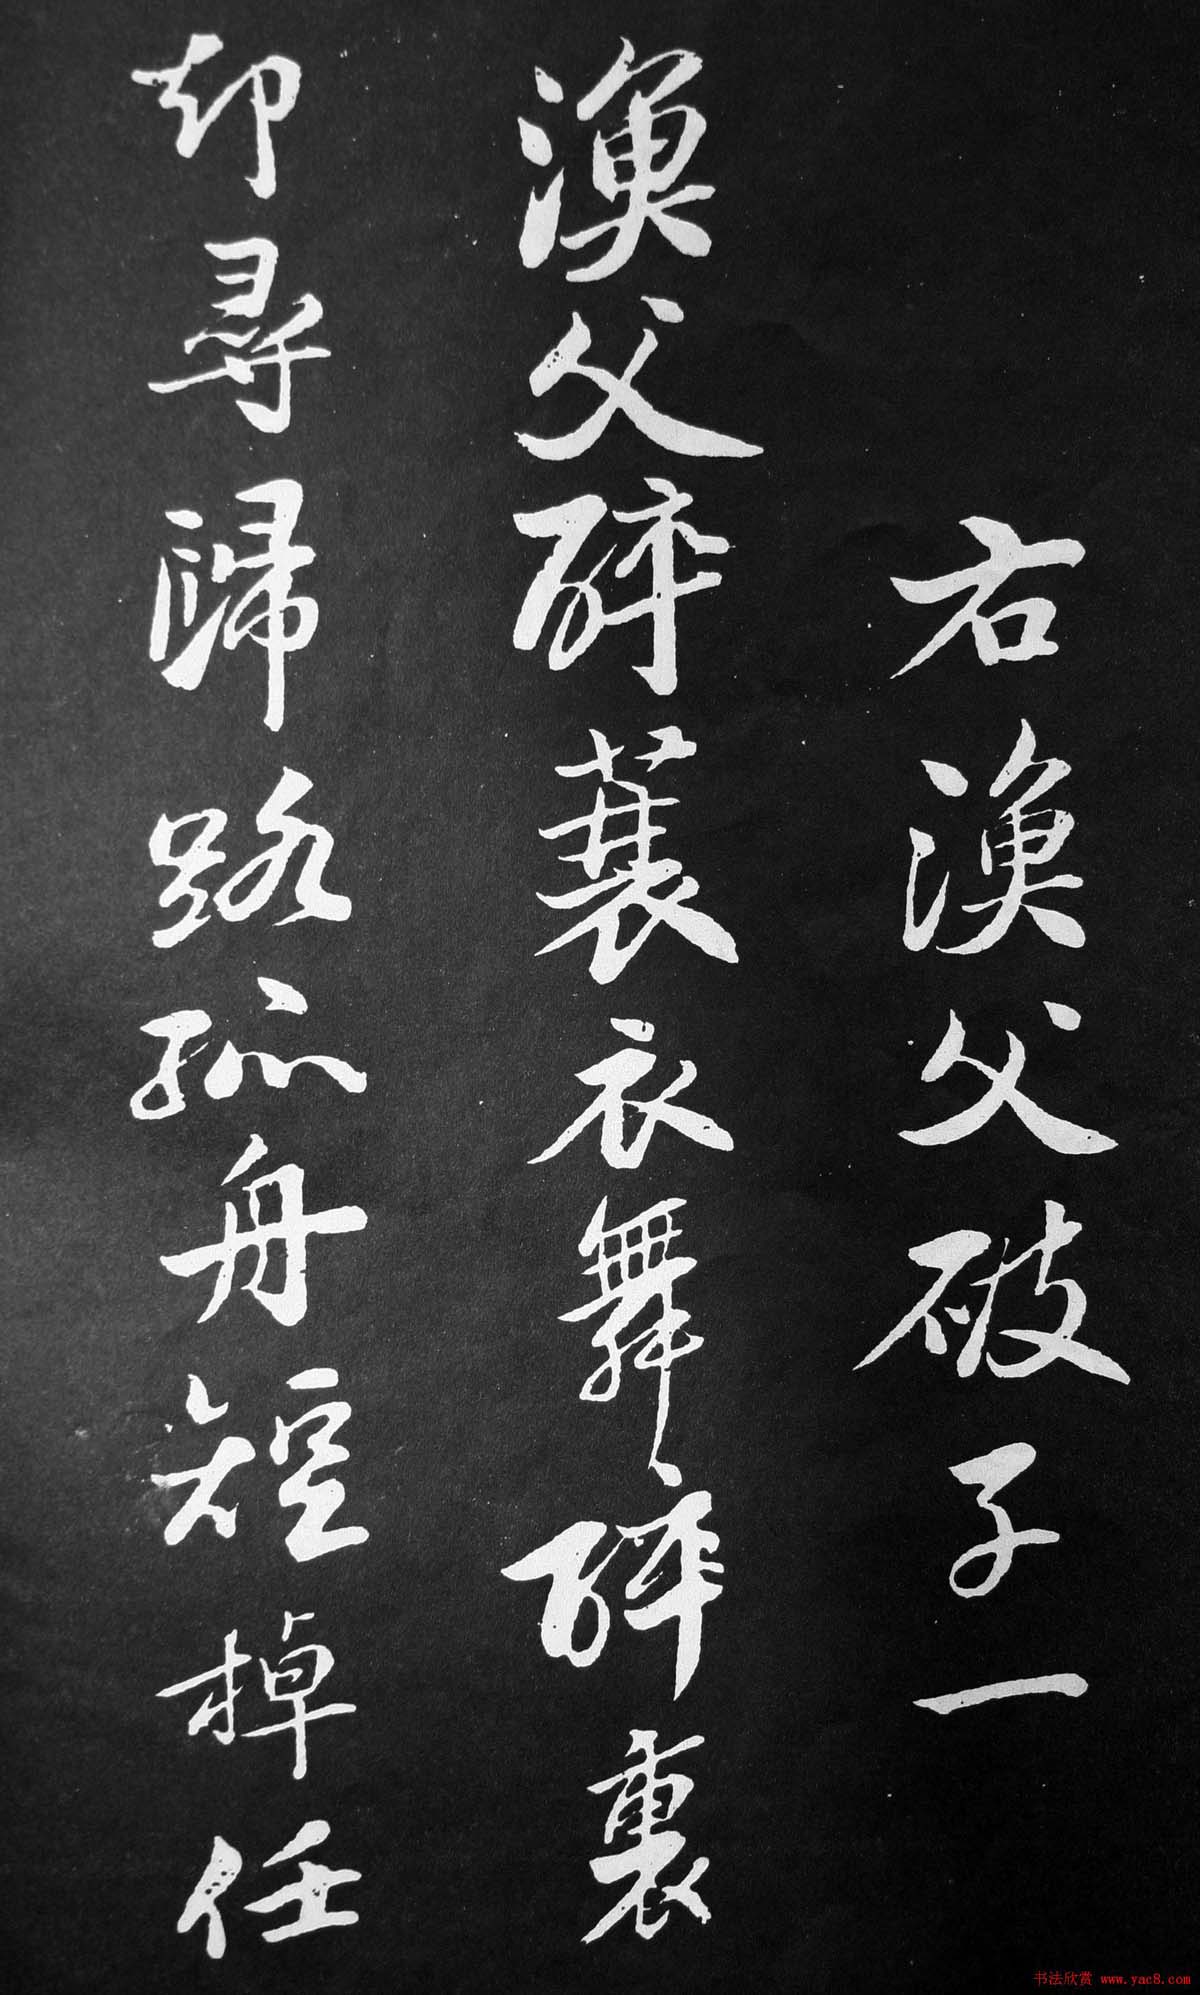 右漁父破子一
漁父醉蓑衣舞醉裏
却尋歸路孤舟短棹任
书法欣赏 www.yac8.com